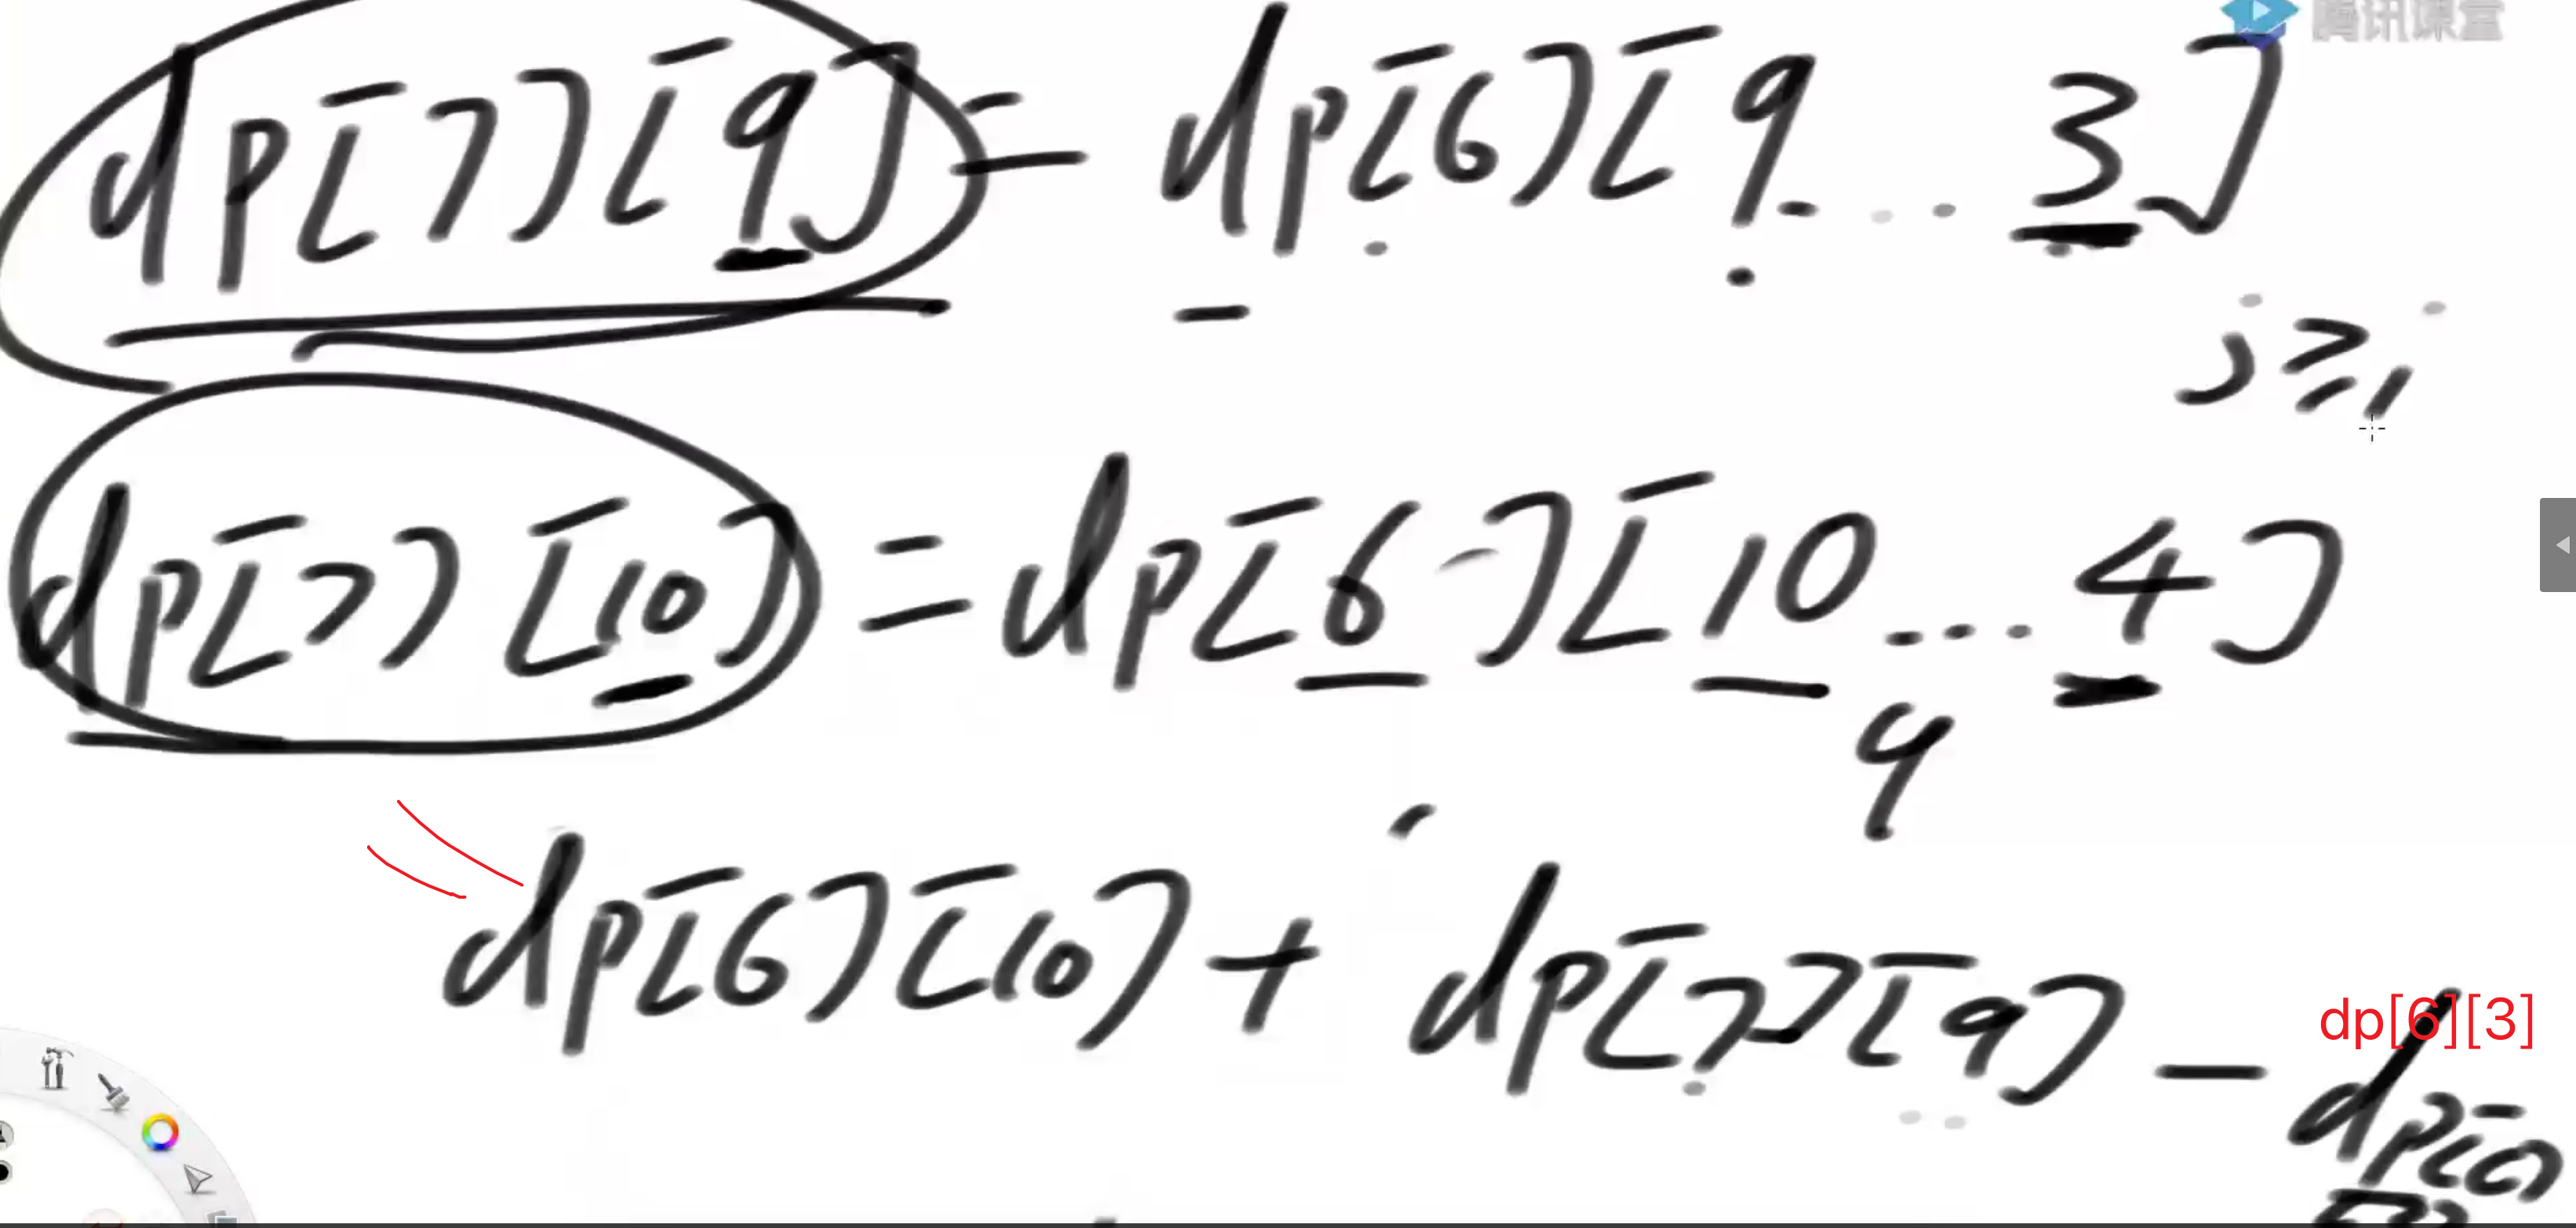 腾讯课堂
dp[7][9] = dp[6][9 ... 3]
j≥i
dp[7][10] = dp[6][10 ... 4]
9
dp[6][10] + dp[7][9] - dp[6][3]